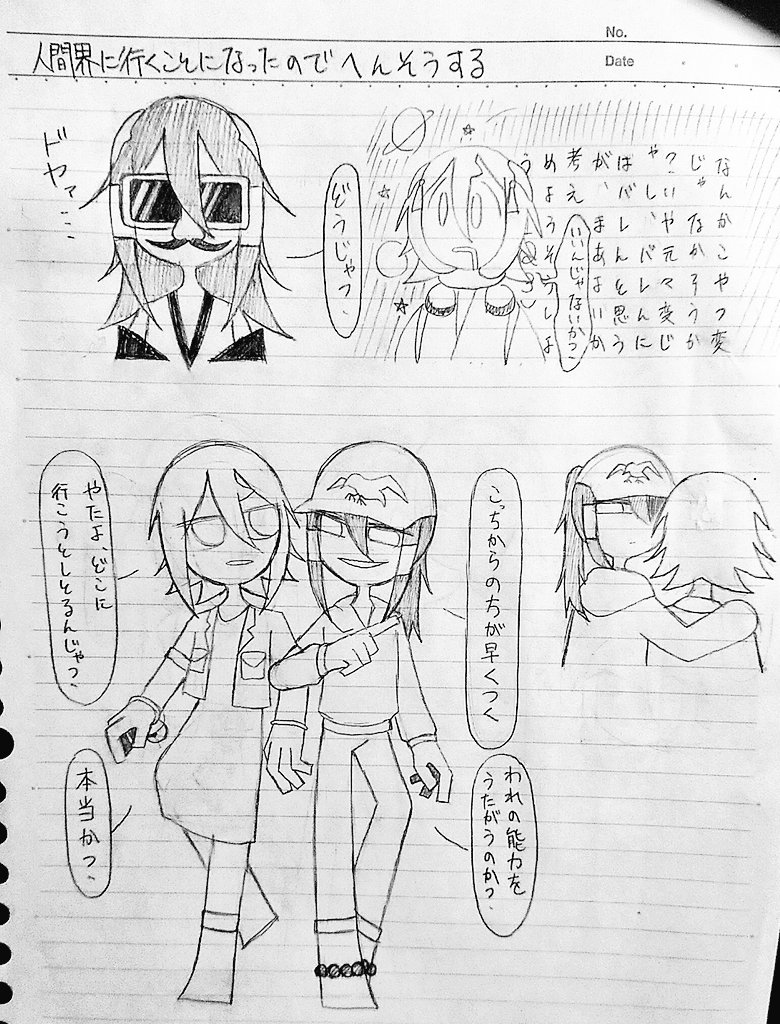 No.
Date
人間界に行くことになったのでへんそうする
なんかこやつ変
じゃなかろうか
?いや元々変じ
ゃし、バレんに
はバレんと思う
が、まあよいか
考え
めようそうしよ
う
いいんじゃないか?
どうじゃ?
ドヤァ…
こっちからの方が早くつく
やたよ、どこに
行こうとしとるんじゃ?
われの能力を
うたがうのか?
本当か?